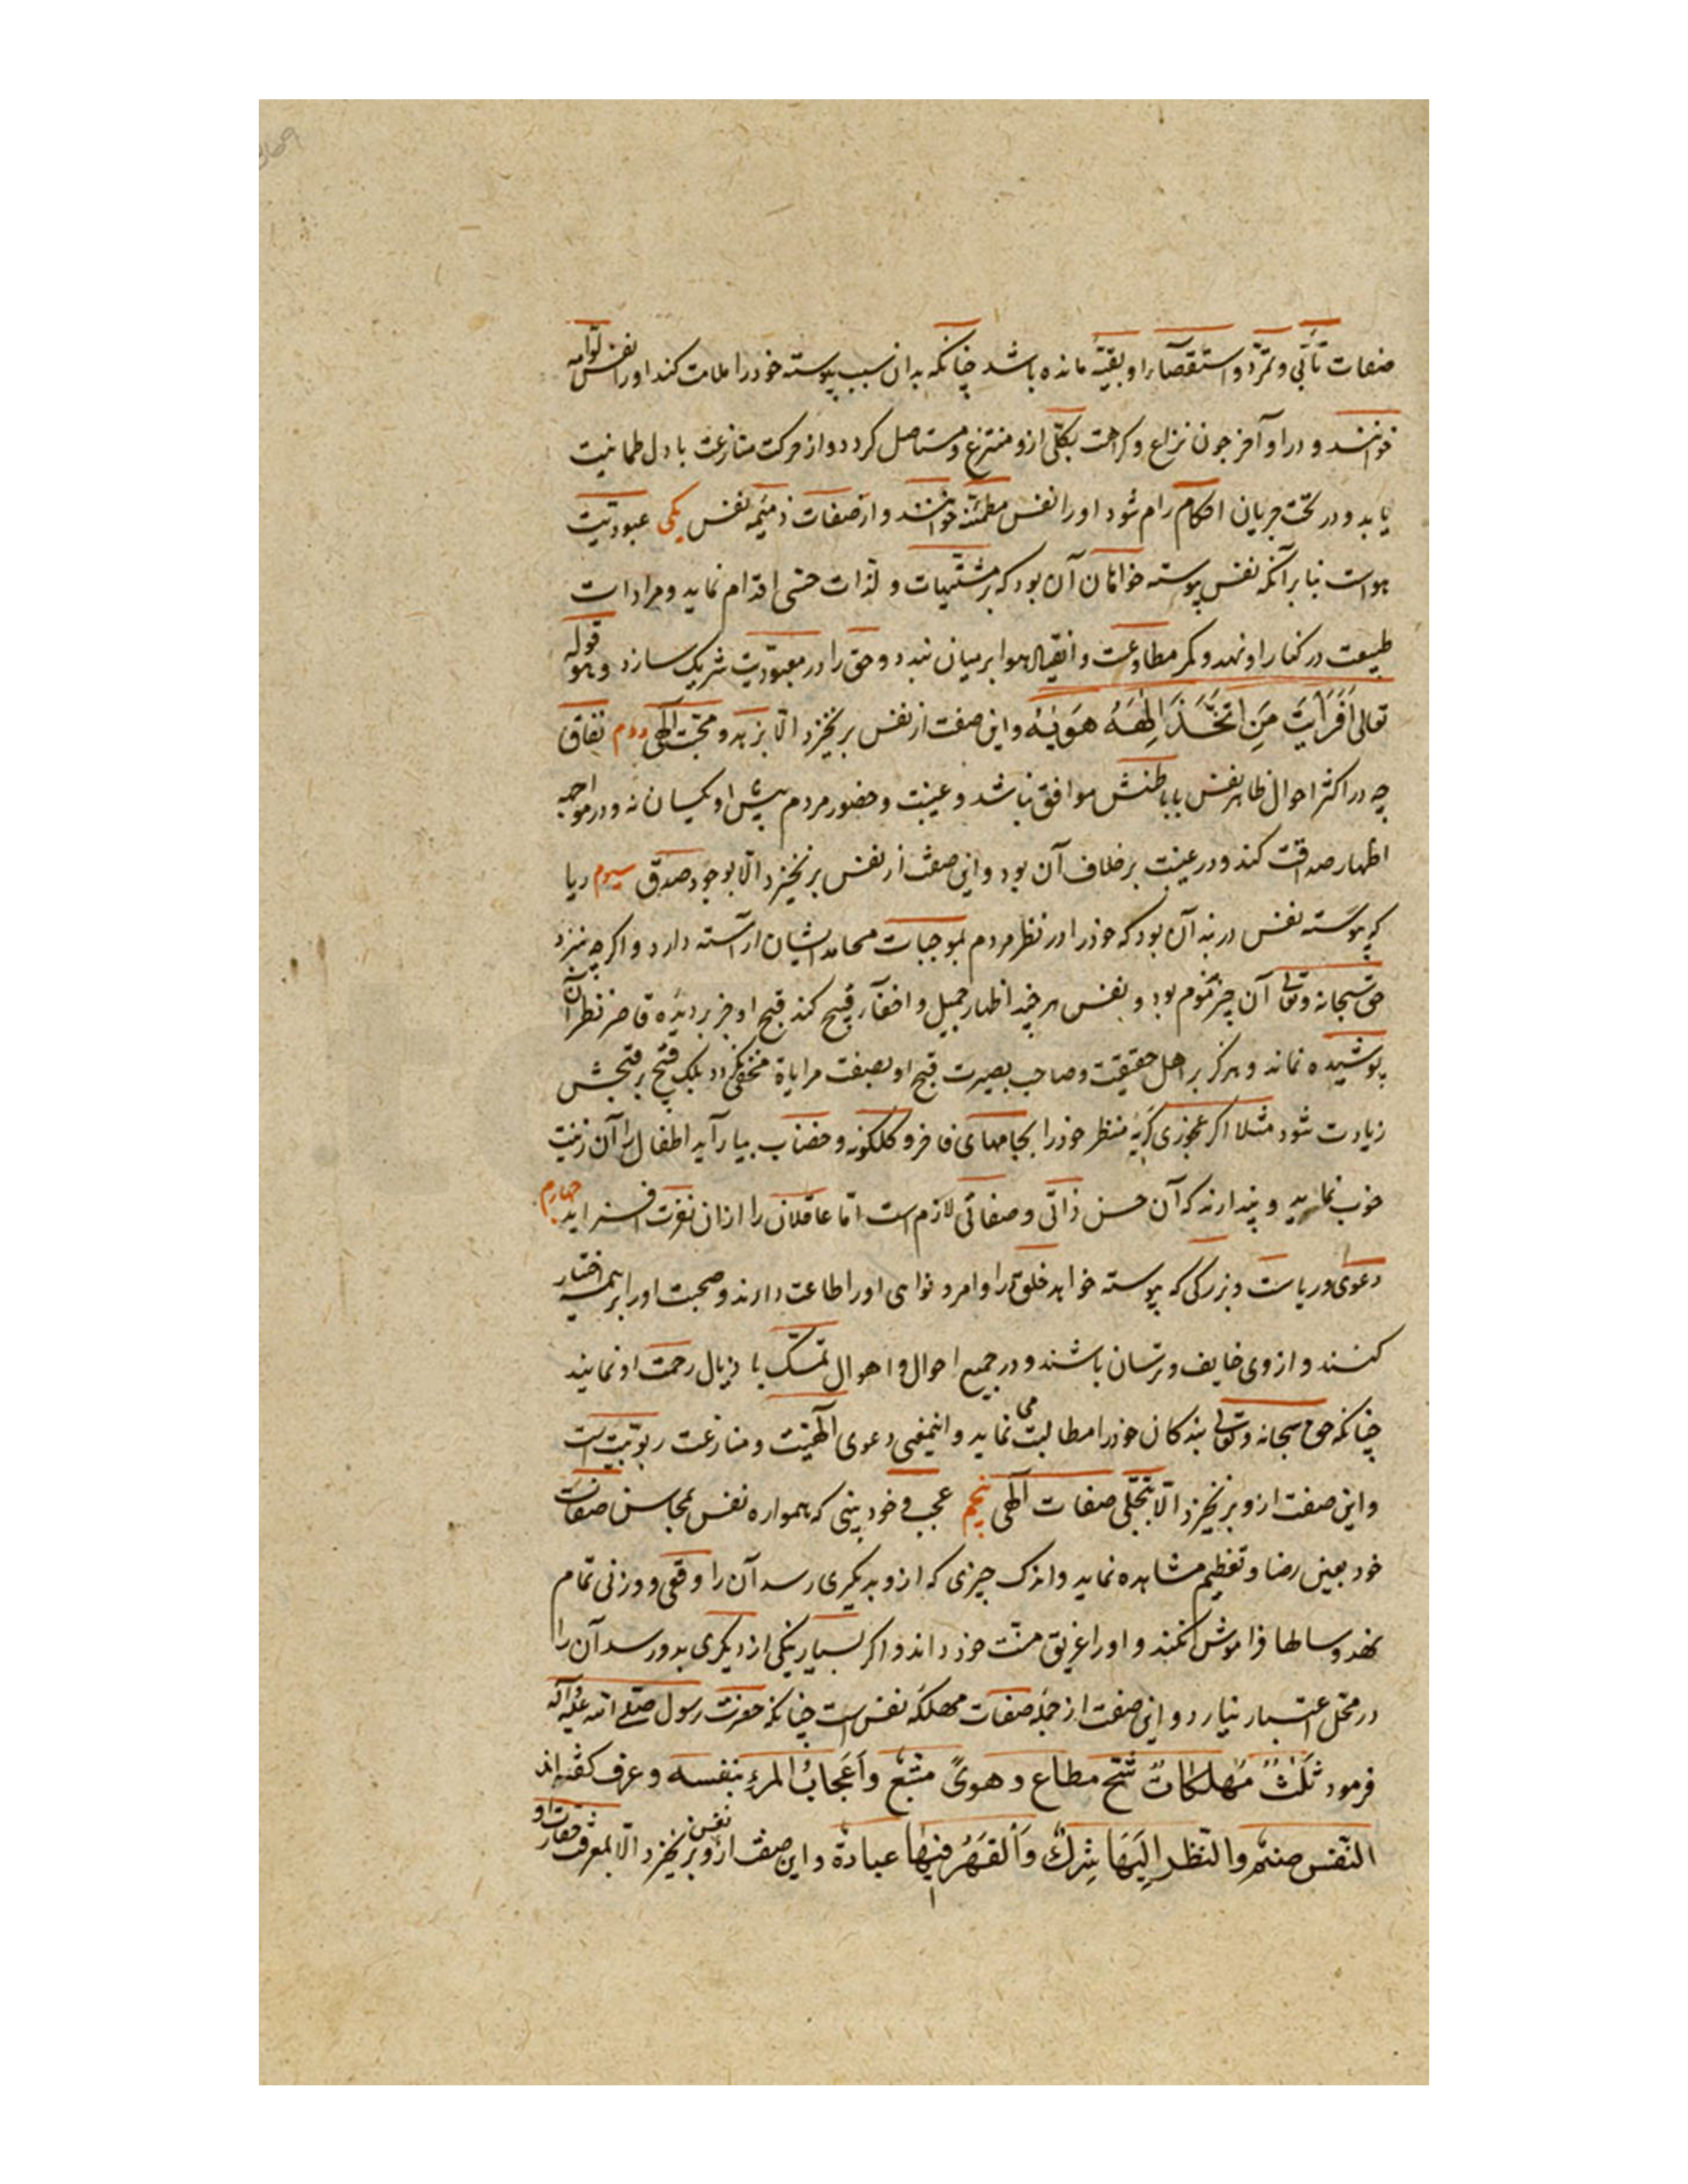 صفات تأبّی و تمرّد و استقصآء او بقیّه مانده باشد چنانکه بدان سبب پیوسته خود را ملامت کند او را نفس لوّامه
خوانند و در اوآخر چون نزاع و کراهت بکلّی ازو منتزع و مستاصل کردد و از حرکت منازعت با دل طمانیت
یابد و در تحت جریان احکام رام شود او را نفس مطمئنّه خوانند و از صفات ذمیمه نفس یکی عبودیّت
هواست بنا بر آنکه نفس پیوسته خواهان آن بود که بر مشتهیات و لذّات حسّی اقدام نماید و مرادات
طبیعت در کنار او نهد و کمر مطاوعت و انقیاد هوا بر میان بندد و حق را در معبودیّت شریک سازد و هو قوله
تعالی اَفَرَاَیتَ مَنِ اتَّخَذَ اِلٰهَهُ هَوٰیهُ و این صفت از نفس برنخیزد الّا بزهد و محبّت آلهی دوم نفاق
چه در اکثر احوال ظاهر نفس با باطنش موافق نباشد و غیبت و حضور مردم پیش او یکسان نه و در مواجهه
اظهار صداقت کند و در غیبت بر خلاف آن بود و این صفت از نفس برنخیزد الّا بوجود صدق سیوم ریا
که پیوسته نفس در بند آن بود که خود را در نظر مردم بموجبات محامد ایشان آراسته دارد و اگرچه نزد
حق سبحانه و تعالی آن چیز مذموم بود و نفس هر چند اظهار جمیل و اخفآء قبیح کند قبح او جز بر دیده قاصر نظران
پوشیده نماند و هرگز بر اهل حقیقت و صاحب بصیرت قبح او بصفت مرایاة مخفی نکردد بلک قبح بر قبحش
زیادت شود مثلا اکر عجوزی کریه منظر خود را بجامهای فاخر و کلکونه و خضاب بیاراید اطفال را آن زینت
خوب نماید و پندارند که آن حسن ذاتی و صفاتی لازم است امّا عاقلان را از ان نفرت افزاید چهارم
دعوی و ریاست و بزرکی که پیوسته خواهد خلق را و امر و نواهی او را اطاعت دارند و صحبت او را بر همه اختیار
کنند و از وی خایف و ترسان باشند و در جمیع احوال و اهوال تمسّک با ذیال رحمت او نمایند
چنانکه حق سبحانه و تعالی بندکان خود را مطالبت می نماید و اینمعنی دعوی آلهیّت و منازعت ربوبیّت است
و این صفت ازو برنخیزد الّا بتجلّی صفات آلهی پنجم عجب و خود بینی که همواره نفس بمحاسن صفات
خود بعین رضا و تعظیم مشاهده نماید و اندک چیزی که ازو بدیکری رسد آن را وقعی و وزنی تمام
نهد و سالها فراموش نکند و او را غریق منّت خود داند و اکر بسیار نیکی از دیکری بدو رسد آن را
در محلّ اعتبار نیارد و این صفت از جمله صفات مهلکه نفس است چنانکه حضرت رسول صلّی الله علیه و آله
فرمود ثَلٰثٌ مُهلِکاتٌ شُحّ مطاع و هویً متّبع و اَعجابُ المرءِ بنفسه و عرف کفته اند
النّفس صنم و النّظر اِلَیهَا شِرکٌ وَ القَهرُ فیهَا عبادة و این صفت ازو نفس برنخیزد الّا بمعرفت حقارت او